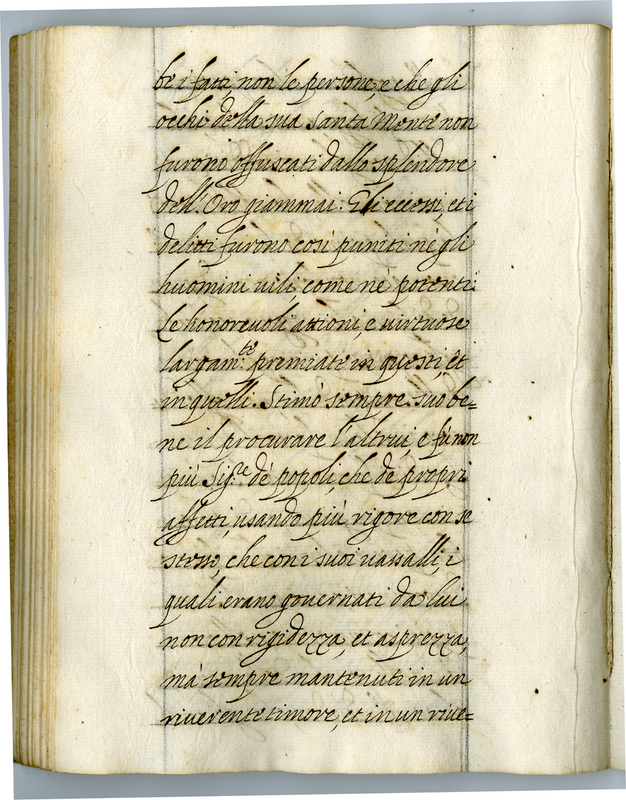 be i fatti, non le persone, e che gli
occhi della sua Santa Mente non
furono offuscati dallo splendore
dell'Oro giammai: Gli eccessi, et i
delitti furono così puniti nè gli
huomini uili, come nè potenti:
Le honoreuoli attioni, e uirtuose
largam:te premiate in questi, et
in quelli. Stimò sempre suo be=
ne il procurare l'altrui, e fù non
più Sig:re dè popoli, che dè propri
affetti, usando più rigore con se
stesso, che con i suoi uassalli, i
quali erano gouernati da lui
non con rigidezza, et asprezza,
mà sempre mantenuti in un
riuerente timore, et in un riue=